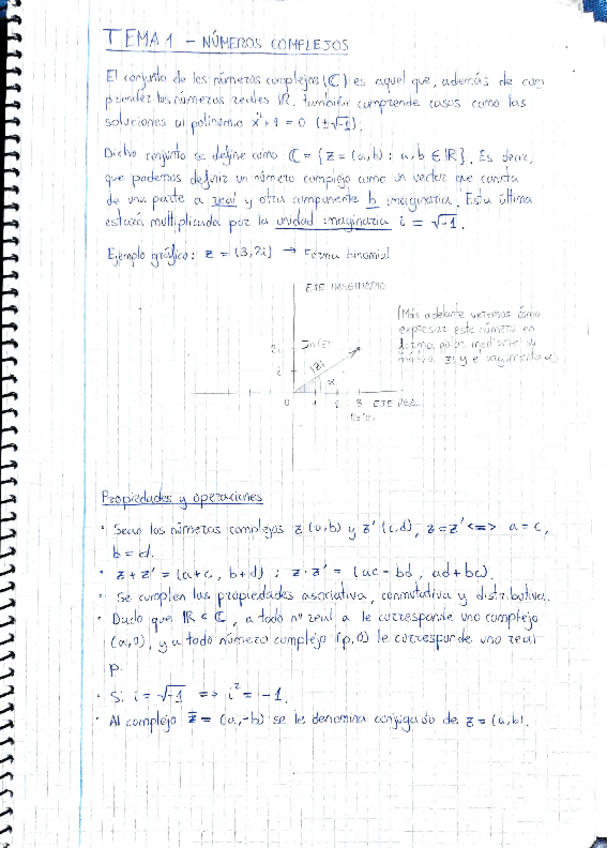 TEMA 1 - NÚMEROS COMPLEJOS
El conjunto de los números complejos (ℂ) es aquel que, además de com
prender los números reales ℝ, también comprende casos como las
soluciones al polinomio x²+1 = 0 (±√-1).
Dicho conjunto se define como ℂ = {z = (a,b) : a,b ∈ ℝ}. Es decir,
que podemos definir un número complejo como un vector que consta
de una parte a real y otra componente b imaginaria. Esta última
estará multiplicada por la unidad imaginaria i = √-1.
Ejemplo gráfico: z = (3,2i) → Forma binomial
EJE IMAGINARIO
(Más adelante veremos cómo
expresar este número en
forma polar mediante su
2i Im(z)
i |z| α
0 1 2 3 EJE REAL
Re(z)
Propiedades y operaciones
· Sean los números complejos z (a,b) y z' (c,d), z = z' <=> a = c,
b = d.
· z + z' = (a+c, b+d) ; z · z' = (ac - bd, ad + bc).
· Se cumplen las propiedades asociativa, conmutativa y distributiva.
· Dado que ℝ ⊂ ℂ, a todo nº real a le corresponde uno complejo
(a,0), y a todo número complejo (p,0) le corresponde uno real
p.
· Si i = √-1 => i² = -1.
· Al complejo z̄ = (a,-b) se le denomina conjugado de z = (a,b).